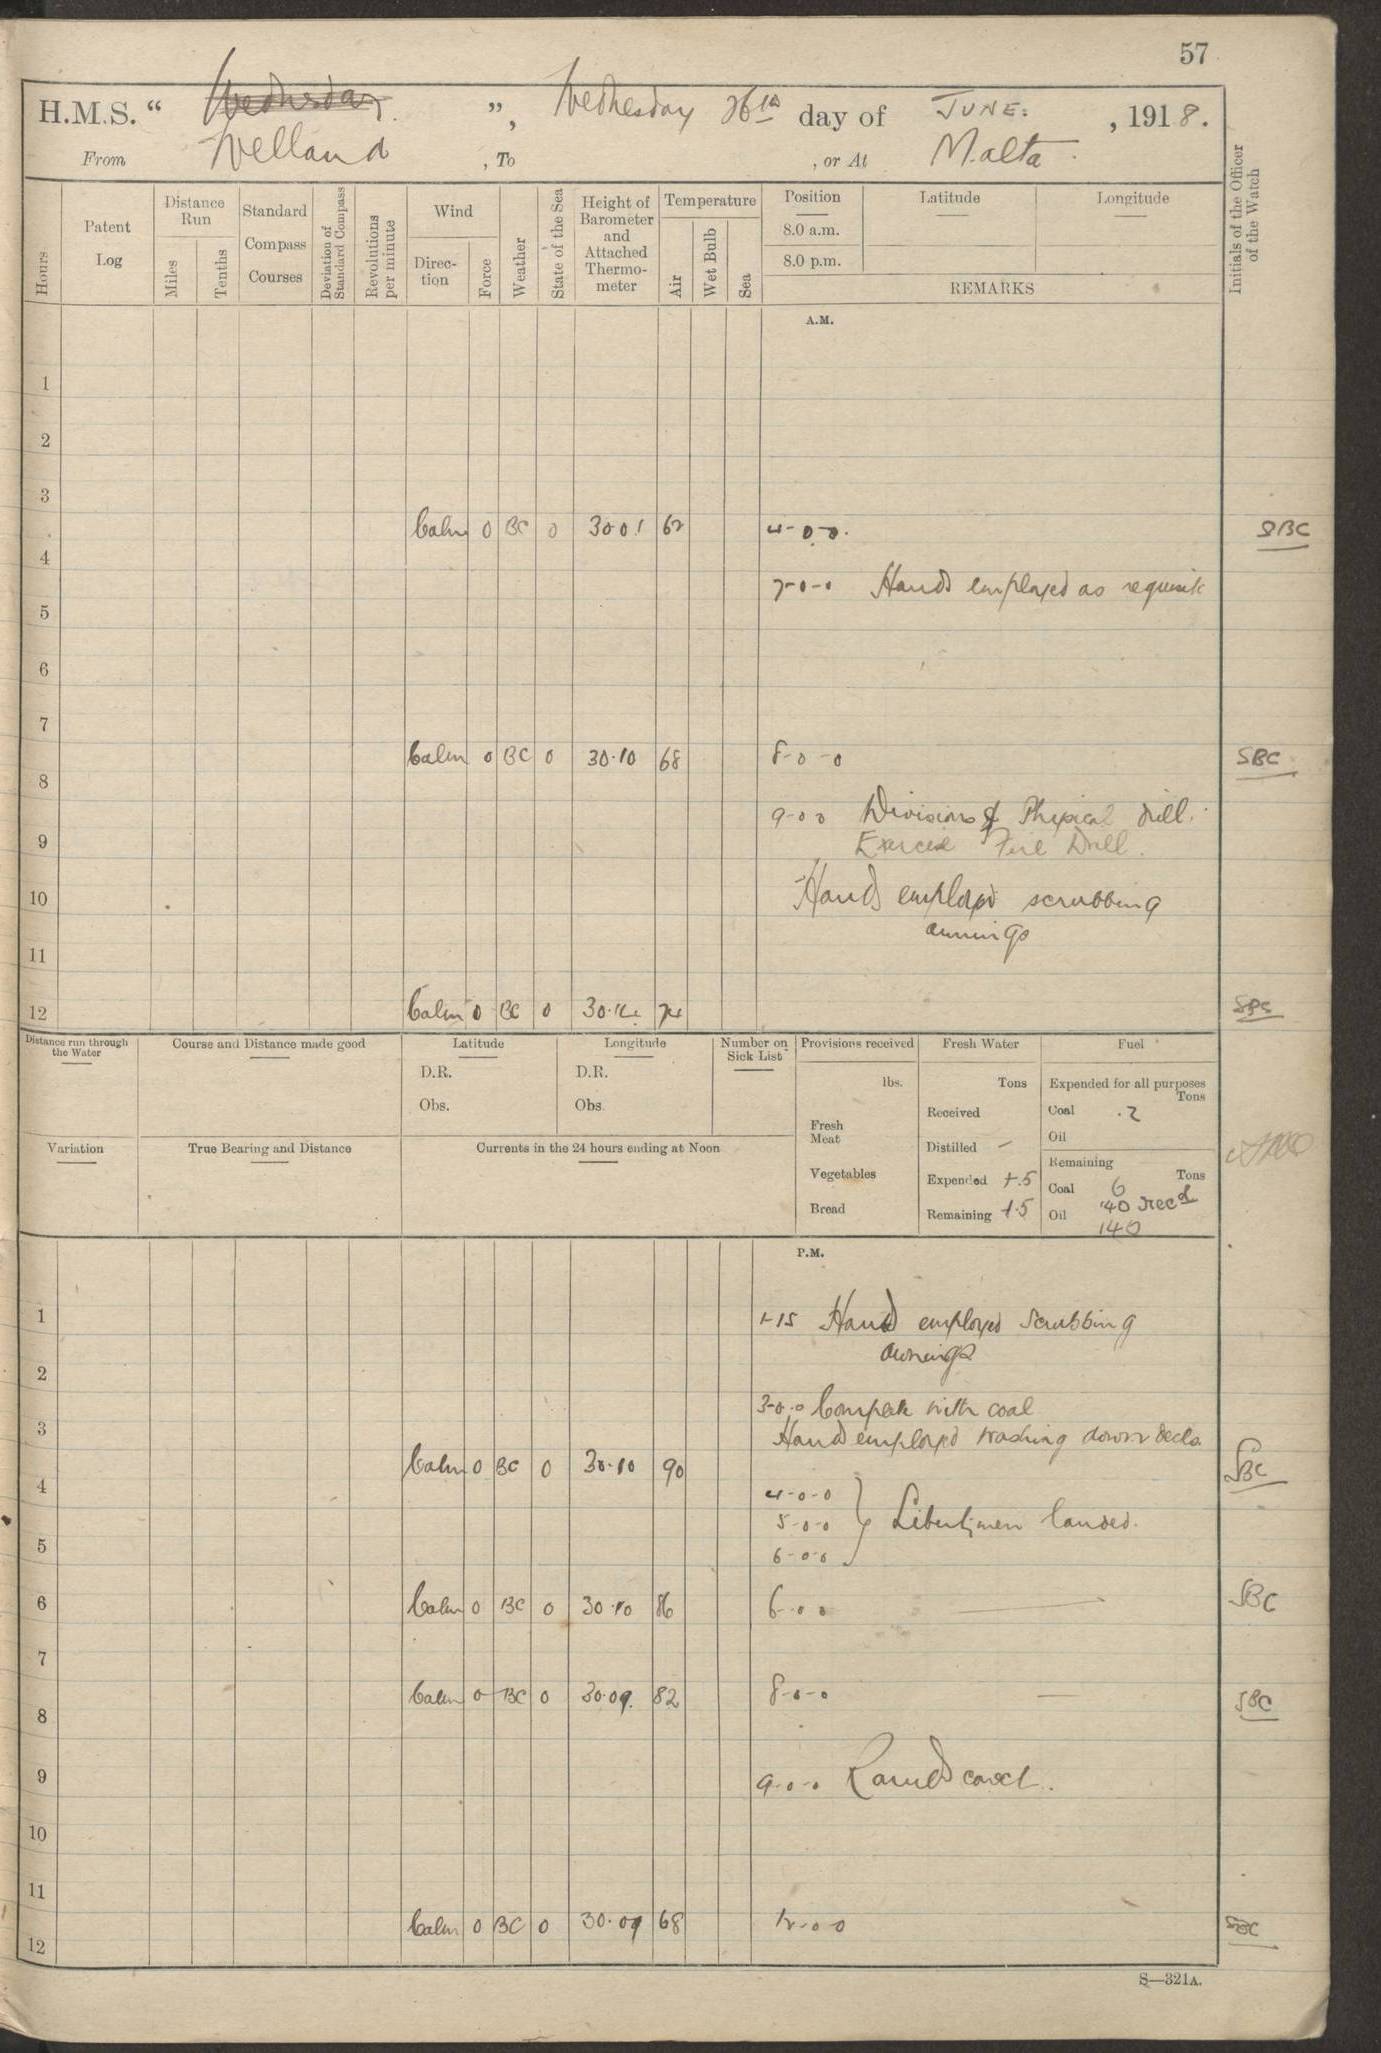 57
H.M.S. “ Wednesday ”, Wednesday 26th day of JUNE. , 1918.
From Welland , To , or At Malta.
Hours
Patent Log
Distance Run
Miles
Tenths
Standard Compass Courses
Deviation of Standard Compass
Revolutions per minute
Wind
Direction
Force
Weather
State of the Sea
Height of Barometer and Attached Thermometer
Temperature
Air
Wet Bulb
Sea
Position
8.0 a.m.
8.0 p.m.
Latitude
Longitude
REMARKS
Initials of the Officer of the Watch
A.M.
1
2
3
Calm 0 BC 0 30.01 62 4-0-0. SBC
4
7-0-0 Hands employed as requisite
5
6
7
Calm 0 BC 0 30.10 68 8-0-0 SBC
8
9-0-0 Divisions & Physical drill.
9 Exercise Fire Drill.
10 Hands employed scrubbing
awnings
11
12 Calm 0 BC 0 30.14 74 SBC
Distance run through the Water
Course and Distance made good
Latitude
D.R.
Obs.
Longitude
D.R.
Obs.
Number on Sick List
Provisions received
lbs.
Fresh Meat
Vegetables
Bread
Fresh Water
Tons
Received
Distilled —
Expended 1.5
Remaining 15
Fuel
Expended for all purposes
Tons
Coal .2
Oil
Remaining
Tons
Coal 6
40 recd
Oil 140
Variation
True Bearing and Distance
Currents in the 24 hours ending at Noon
P.M.
1 1-15 Hands employed scrubbing
awnings
2
3-0-0 Complete with coal
3 Hands employed washing down decks
Calm 0 BC 0 30.10 90 SBC
4 4-0-0
5-0-0 Libertymen landed.
5 6-0-0
6 Calm 0 BC 0 30.10 86 6-0-0 — SBC
7
Calm 0 BC 0 30.09 82 8-0-0 — SBC
8
9 9-0-0 Rounds correct.
10
11
Calm 0 BC 0 30.09 68 12-0-0 SBC
12
S—321A.